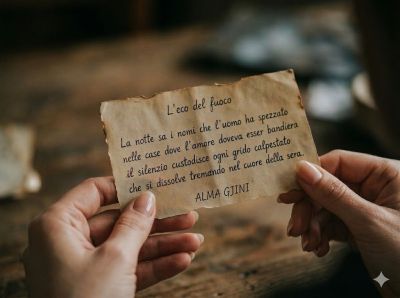 L'eco del fuoco
La notte sa i nomi che l'uomo ha spezzato
nelle case dove l'amore doveva esser bandiera
il silenzio custodisce ogni grido calpestato
che si dissolve tremando nel cuore della sera.
ALMA GJINI